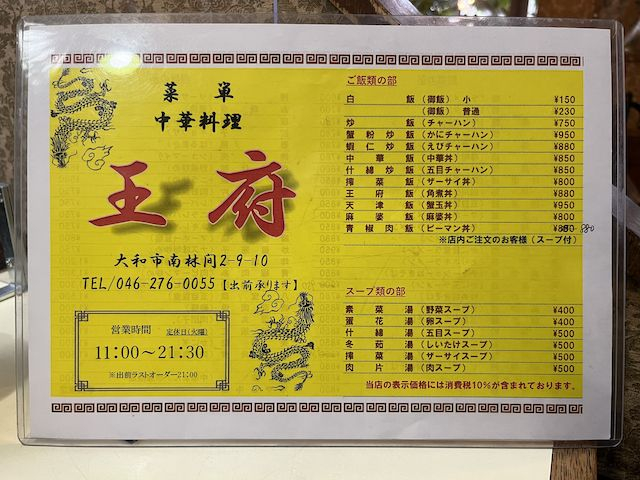 菜単
中華料理
王府
大和市南林間2-9-10
TEL/046-276-0055【出前承ります】
営業時間 定休日(火曜)
11:00～21:30
※出前ラストオーダー21:00
ご飯類の部
白飯(御飯) 小 ¥150
(御飯) 普通 ¥230
炒飯(チャーハン) ¥750
蟹粉炒飯(かにチャーハン) ¥950
蝦仁炒飯(えびチャーハン) ¥880
中華飯(中華丼) ¥850
什錦炒飯(五目チャーハン) ¥850
搾菜飯(ザーサイ丼) ¥800
王府飯(角煮丼) ¥880
天津飯(蟹玉丼) ¥950
麻婆飯(麻婆丼) ¥800
青椒肉飯(ピーマン丼)
※店内ご注文のお客様(スープ付)
スープ類の部
素菜湯(野菜スープ) ¥400
蛋花湯(卵スープ) ¥400
什錦湯(五目スープ) ¥500
冬茹湯(しいたけスープ) ¥500
搾菜湯(ザーサイスープ) ¥500
肉片湯(肉スープ) ¥500
当店の表示価格には消費税10%が含まれております。